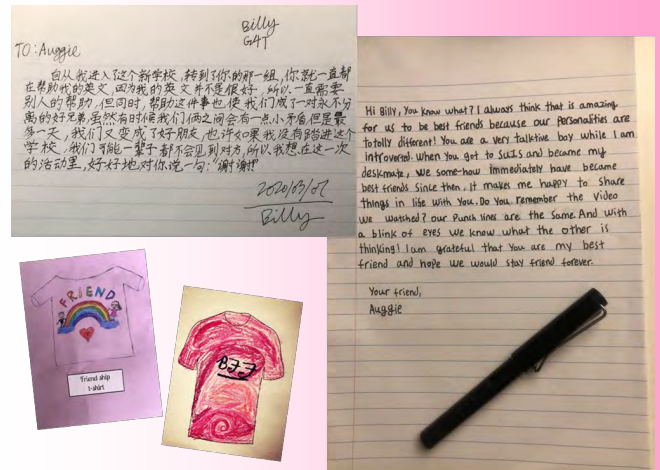 Billy
G4T
TO:Auggie
自从我进入了这个新学校,转到了你的那一组,你就一直都
在帮助我的英文,因为我的英文并不是很好,所以一直需要
别人的帮助,但同时,帮助这件事也使我们成了一对永不分
离的好兄弟,虽然有时候我们俩之间会有一点小矛盾但是最
多一天,我们又变成了好朋友,也许如果我没有踏进这个
学校,我们可能一辈子都不会见到对方,所以,我想在这一次
的活动里,好好地对你说一句:"谢谢!"
2020/03/01
Billy
Hi Billy, You know what? I always think that is amazing
for us to be best friends because our Personalities are
totolly different! You are a very talktive boy while I am
introverted. When you got to SUIS and became my
deskmate, we some-how immediately have became
best friends since then. It makes me happy to share
things in life with You. Do You remember the video
we watched? our Punch lines are the Same. And with
a blink of eyes we know what the other is
thinking! I am grateful that You are my best
friend and hope we would stay friend forever.
Your friend,
Auggie
FRIEND
Friend ship
t-shirt
BFF